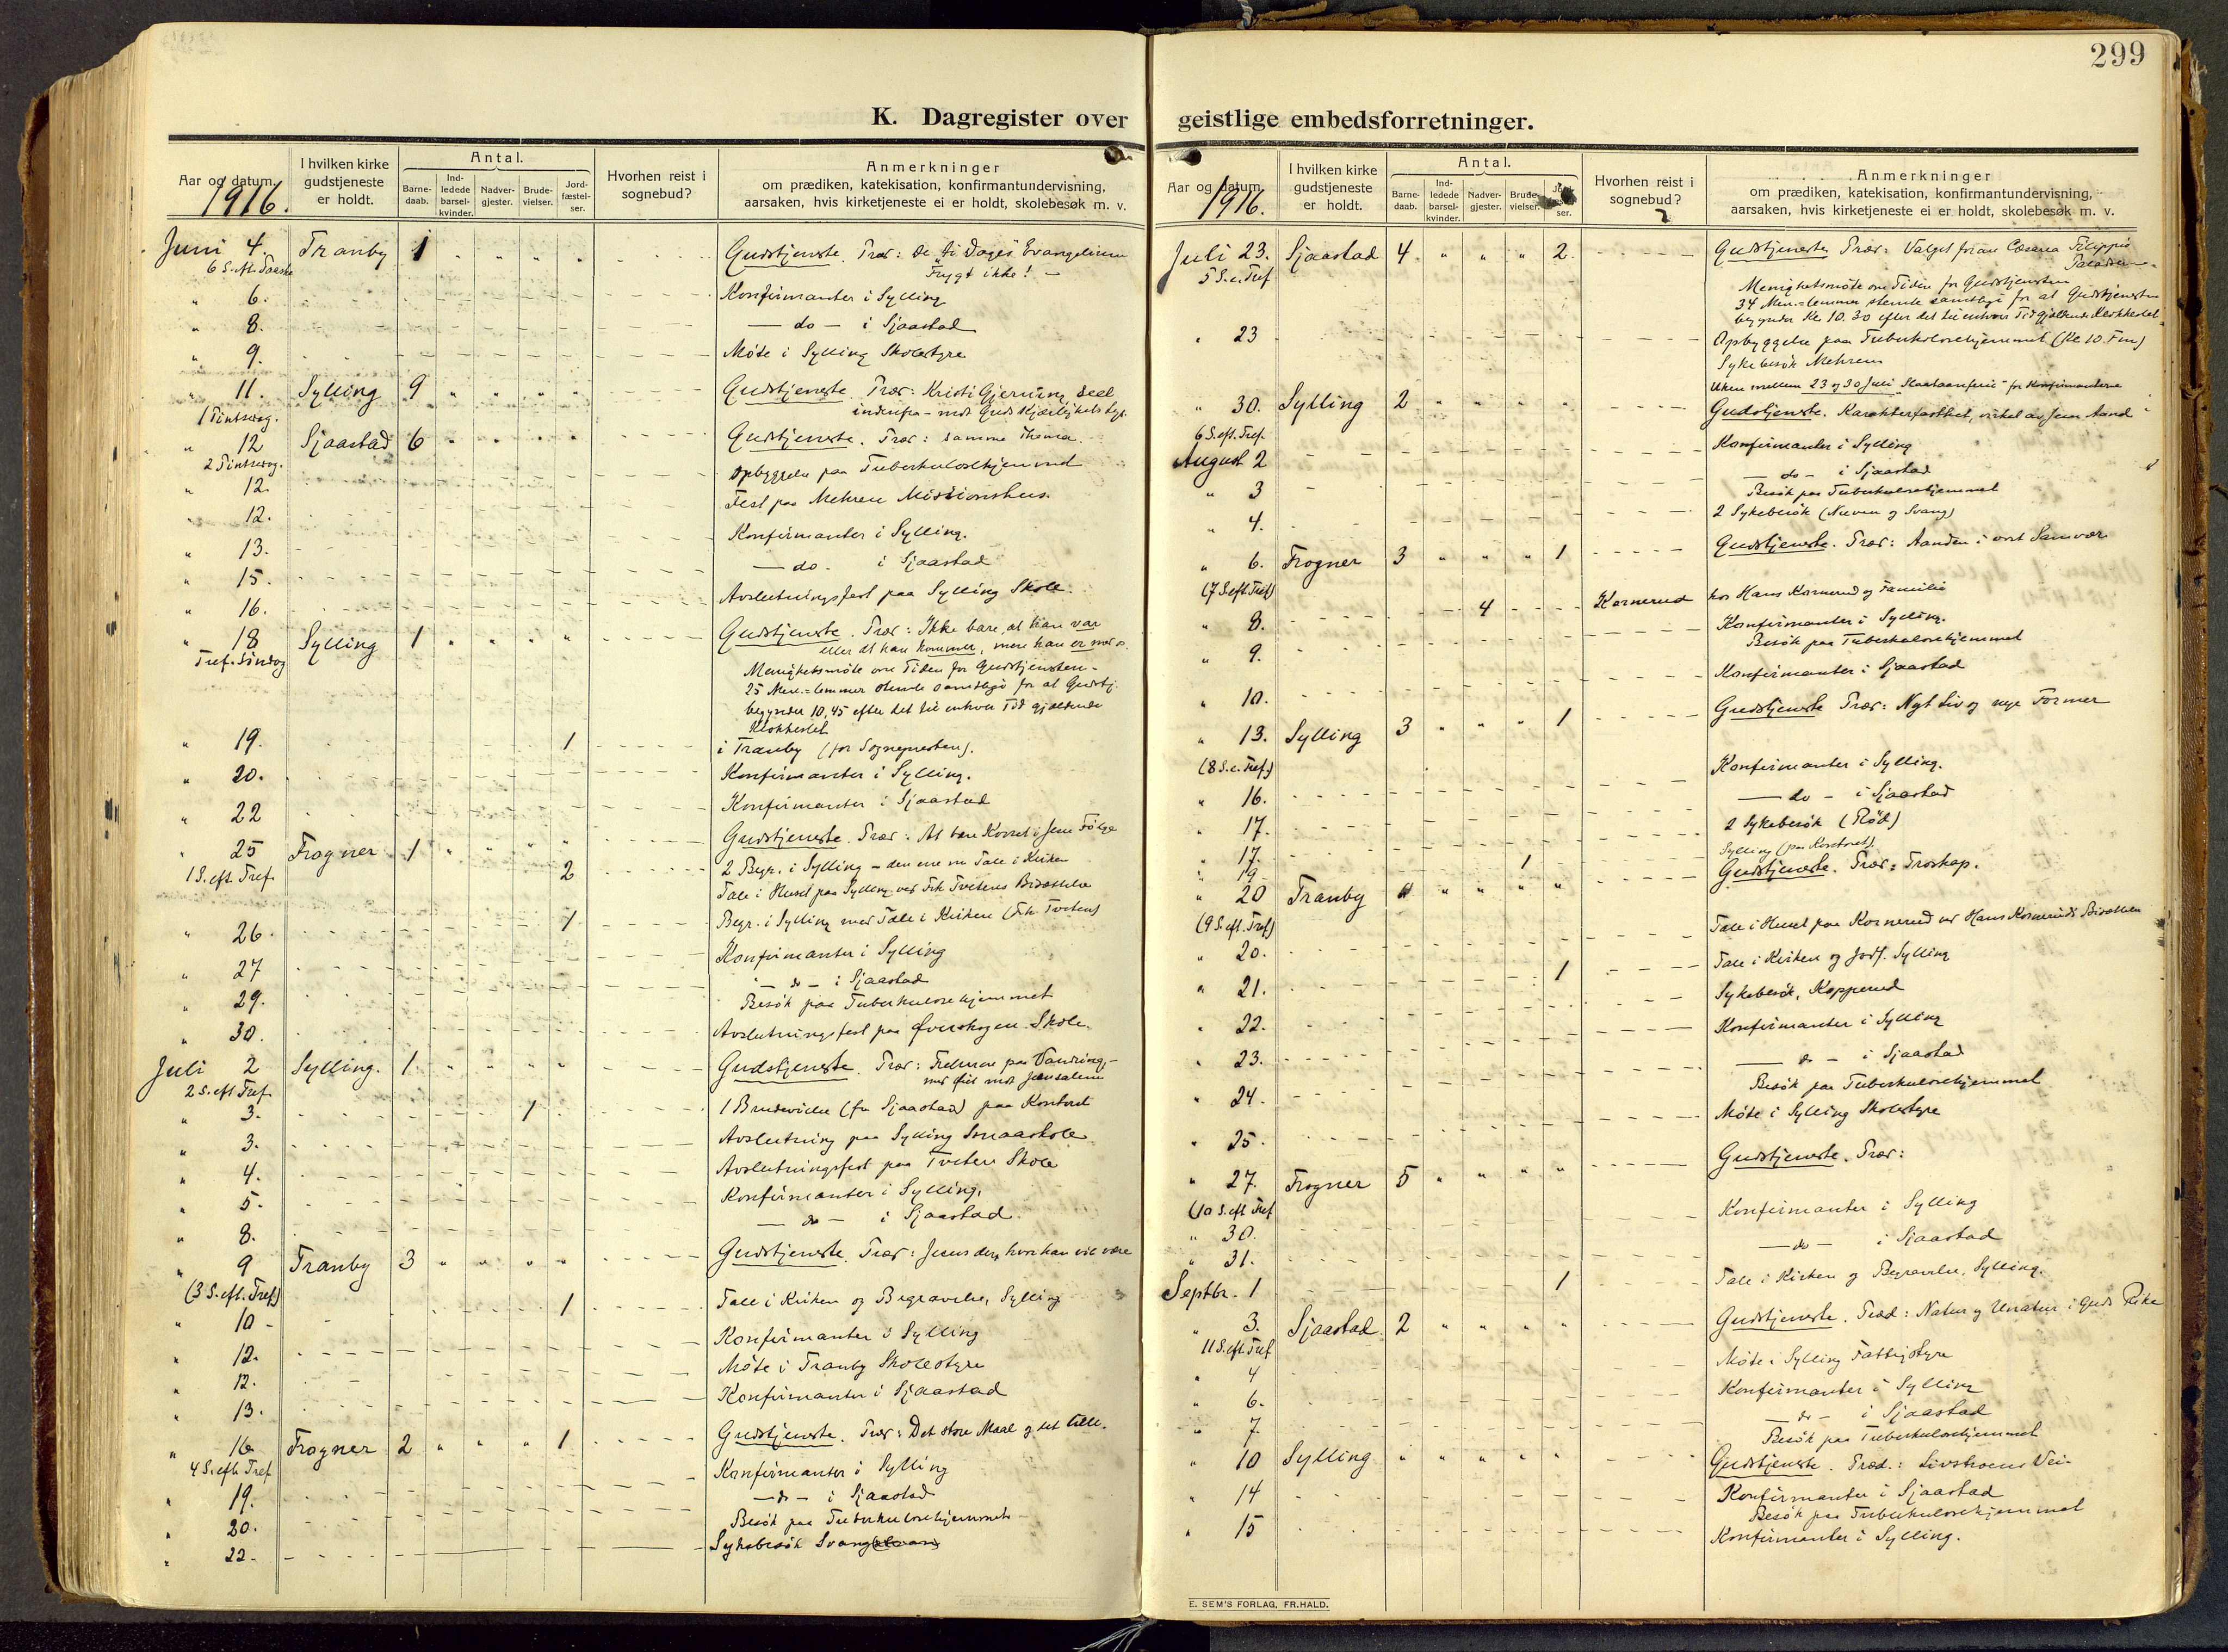 299
K. Dagregister over geistlige embedsforretninger.
Aar og datum.
1916.
I hvilken kirke gudstjeneste er holdt.
Antal.
Barne-daab.
Ind-ledede barsel-kvinder.
Nadver-gjester.
Brude-vielser.
Jord-fæstel-ser.
Hvorhen reist i sognebud?
Anmerkninger
om prædiken, katekisation, konfirmantundervisning,
aarsaken, hvis kirketjeneste ei er holdt, skolebesøk m. v.
Juni 4. Tranby 1 " " " " Gudstjeneste. Præd: De "ti Dages" Evangelium
6 S. eft. Paaske Frygt ikke! –
" 6. Konfirmanter i Sylling
" 8. — do — i Sjaastad
" 9. Møte i Sylling Skolestyre
" 11. Sylling 9 " " " " Gudstjeneste. Præd: Kristi Gjerning, Seel
1 Pintsedag. indenfra – mot Guds Kjærlighets
" 12 Sjaastad 6 " " " " Gudstjeneste. Præd: samme Thema.
2 Pintsedag.
" 12. Opbyggelse paa Tuberkulosehjemmet
" 12. Fest paa Mehren Missionshus.
" 13. Konfirmanter i Sylling.
" 15. — do. i Sjaastad
" 16. Avslutningsfest paa Sylling Skole.
" 18 Sylling 1 " " " " Gudstjeneste. Præd: Ikke bare, at han var
Tref. Søndag eller at han kommer, men han er
Menighetsmøte om Tiden for Gudstjenesten.
25 Men.=lemmer stemte samtlige for at Gudstj.
begynder 10,45 efter det til enhver Tid gjældende
Klokkeslet
" 19. 1 i Tranby (for Sognepresten).
" 20. Konfirmanter i Sylling.
" 22 Konfirmanter i Sjaastad
" 25 Frogner 1 " " " " Gudstjeneste. Præd: At bære Korset i Jesu Følge
1 S. eft. Tref. 2 2 Begr. i Sylling – den ene m Tale i Kirken
Tale i Huset paa Sylling ved Frk Tvetens Bisættelse
" 26. 1 Begr. i Sylling med Tale i Kirken (Frk Tveten)
" 27 Konfirmanter i Sylling
" 29. — do — i Sjaastad
Besøk paa Tuberkulosehjemmet
" 30. Avslutningsfest paa Øverskogen Skole.
Juli 2 Sylling. 1 " " " " Gudstjeneste. Præd: Frelseren paa Vandring,–
2 S. eft Tref. mot Jerusalem
" 3. 1 1 Brudevielse (fra Sjaastad) paa Kontoret
" 3. Avslutning paa Sylling Smaaskole
" 4. Avslutningsfest paa Tveten Skole
" 5. Konfirmanter i Sylling.
" 8. — do — i Sjaastad.
" 9 Tranby 3 " " " " Gudstjeneste. Præd: Jesus der, hvor han vil være
(3 S. eft. Tref)
" 10 - 1 Tale i Kirken og Begravelse, Sylling
" 12. Konfirmanter i Sylling
" 12. Møte i Tranby Skolestyre
" 13. Konfirmanter i Sjaastad
" 16 Frogner 2 " " " 1 Gudstjeneste. Præd: Det store Maal og det lille.
4 S. eft Tref
" 19. Konfirmanter i Sylling
" 20. — do — i Sjaastad
Besøk paa Tuberkulosehjemmet
" 22 - Sykebesøk Svang
Aar og datum.
1916.
I hvilken kirke gudstjeneste er holdt.
Antal.
Barne-daab.
Ind-ledede barsel-kvinder.
Nadver-gjester.
Brude-vielser.
ser.
Hvorhen reist i sognebud?
Anmerkninger
om prædiken, katekisation, konfirmantundervisning,
aarsaken, hvis kirketjeneste ei er holdt, skolebesøk m. v.
Juli 23. Sjaastad 4 " " " 2. Gudstjeneste Præd: Valget foran Cæsarea Filippis
5 S. e. Tref
Menighetsmøte om Tiden for Gudstjenesten
34 Men.=lemmer stemte samtlige for at Gudstjenesten
begynder Kl 10.30 efter det til enhver Tid gjældende Klokkeslet
" 23 Opbyggelse paa Tuberkulosehjemmet (Kl 10. Fm)
Sykebesøk Mehren
Uken mellem 23 og 30 Juli "Slaataanferie" for Konfirmanterne
" 30. Sylling 2 " " " " Gudstjeneste. Karakterfasthet, virket av Jesu Aand
6 S. eft. Tref.
August 2 Konfirmanter i Sylling
" 3 — do — i Sjaastad
Besøk paa Tuberkulosehjemmet
" 4. 2 Sykebesøk (Næven og Svang)
" 6. Frogner 3 " " " 1 Gudstjeneste. Præd: Aanden i vort Samvær
(7 S. eft. Tref)
" 8. 4 Kornerud hos Hans Kornerud og Familie
" 9. Konfirmanter i Sylling.
Besøk paa Tuberkulosehjemmet
" 10. Konfirmanter i Sjaastad
" 13. Sylling 3 " " " 1 Gudstjeneste Præd: Nyt Liv og nye Former
(8 S. e. Tref.)
" 16. Konfirmanter i Sylling.
" 17. — do — i Sjaastad
" 17. 2 Sykebesøk (Rød)
" 19 1 Sylling (paa Kontoret).
" 20 Tranby " " " " Gudstjeneste. Præd: Troskap.
(9 S. eft. Tref)
" 20. Tale i Huset paa Kornerud ved Hans Korneruds Bisættelse
" 21. 1 Tale i Kirken og Jordf. Sylling
" 22. Sykebesøk, Kopperud
" 23. Konfirmanter i Sylling
" 24. — do — i Sjaastad
Besøk paa Tuberkulosehjemmet
" 25. Møte i Sylling Skolestyre
" 27. Frogner 5 " " " " Gudstjeneste. Præd:
(10 S. eft Tref
" 30. Konfirmanter i Sylling
" 31. — do — i Sjaastad
Septbr. 1 1 Tale i Kirken og Begravelse, Sylling.
" 3. Sjaastad. 2 " " " " Gudstjeneste. Præd: Natur og Unatur i Guds Rike
11 S. eft Tref
" 4 Møte i Sylling Fattigstyre
" 6. Konfirmanter i Sylling
" 7. — do — i Sjaastad
Besøk paa Tuberkulosehjemmet
" 10 Sylling " " " " " Gudstjeneste. Præd.: Livskroens Vei.
" 14 Konfirmanter i Sjaastad
Besøk paa Tuberkulosehjemmet
" 15 Konfirmanter i Sylling.
E. SEM'S FORLAG, FR.HALD.